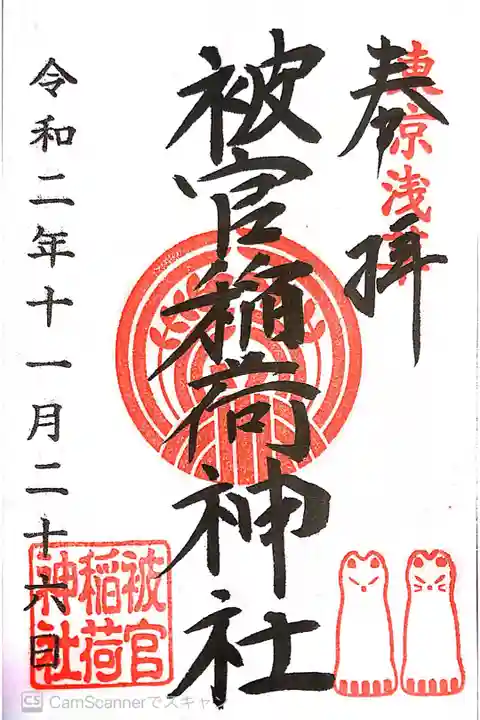 奉拝
東京浅草
被官稲荷神社
令和二年十一月二十六日
被官
稲荷
神社
CS CamScannerでスキャン